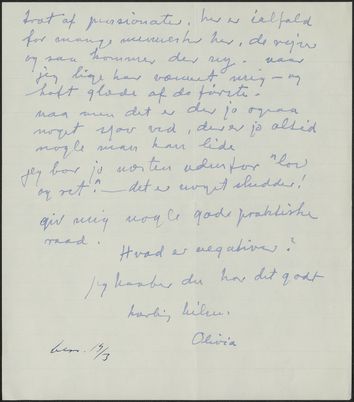 træt af pensionater. her er ialfald
for mange mennesker her, de rejser
og saa kommer der ny - naar
jeg lige har vænnet mig - og
haft glæde af de første.
naa men det er der jo ogsaa
noget sjov ved, der er jo altid
nogle man kan lide
jeg bor jo næsten udenfor "lov
og ret" - det er noget sludder!
giv mig nogle gode praktiske
raad.
Hvad er negativer?
jeg haaber du har det godt
kærlig hilsen.
Olivia
19/3